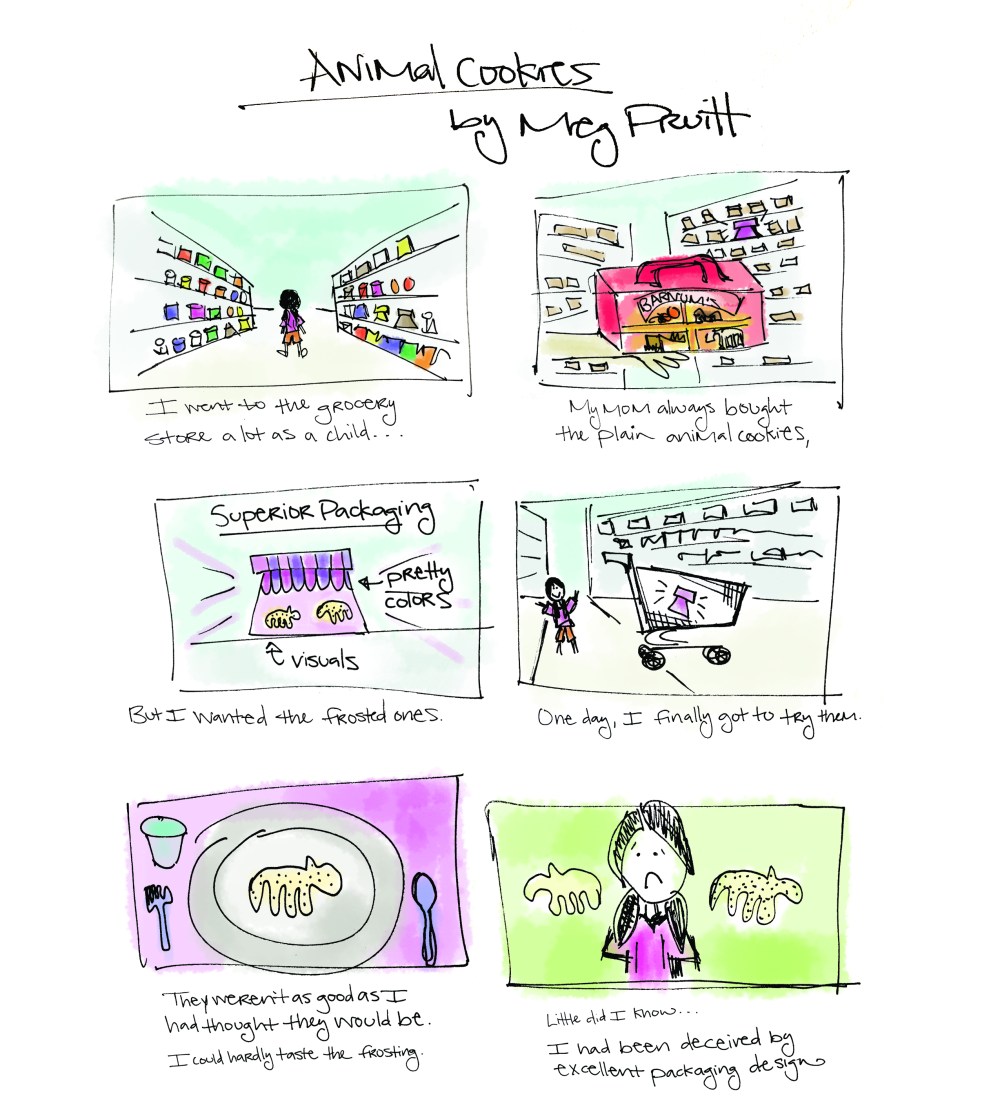 Animal Cookies
by Meg Pruitt
I went to the grocery
store a lot as a child...
BARNUM'S
My mom always bought
the plain animal cookies,
Superior Packaging
pretty
colors
visuals
But I wanted the frosted ones.
One day, I finally got to try them.
They weren't as good as I
had thought they would be.
I could hardly taste the frosting.
Little did I know...
I had been deceived by
excellent packaging design